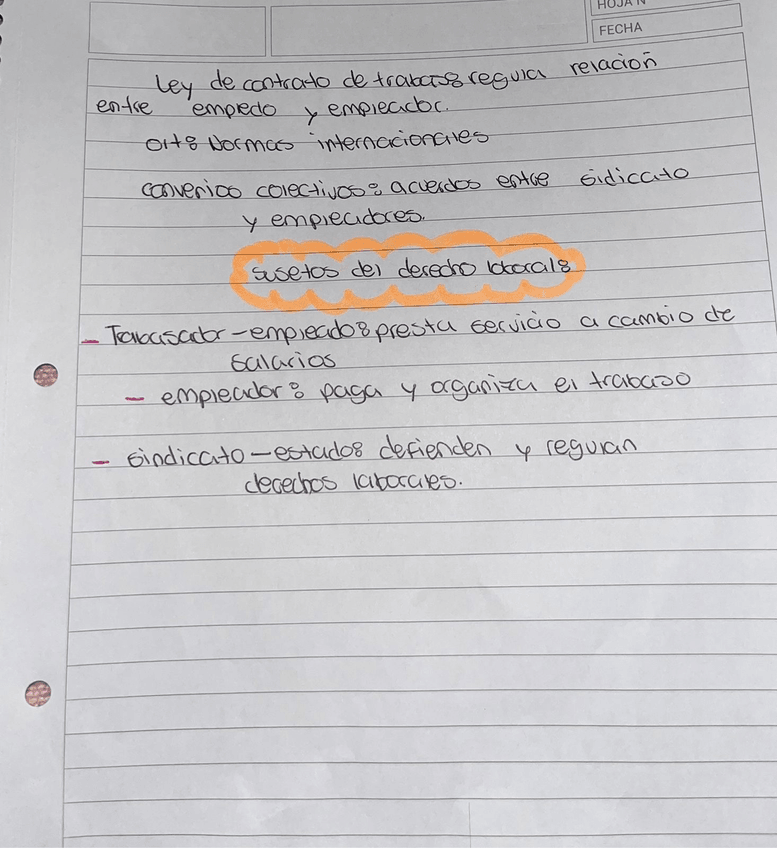 HOJA N
FECHA
Ley de contrato de trabajo: regula relación
entre empledo y empleador.
OIT: Normas internacionales
convenios colectivos: acuerdos entre sidicato
y empleadores.
sujetos del derecho laboral:
- Trabajador - empleado: presta servicio a cambio de
salarios
- empleador: paga y organiza el trabajo
- sindicato - estado: defienden y regulan
derechos laborales.